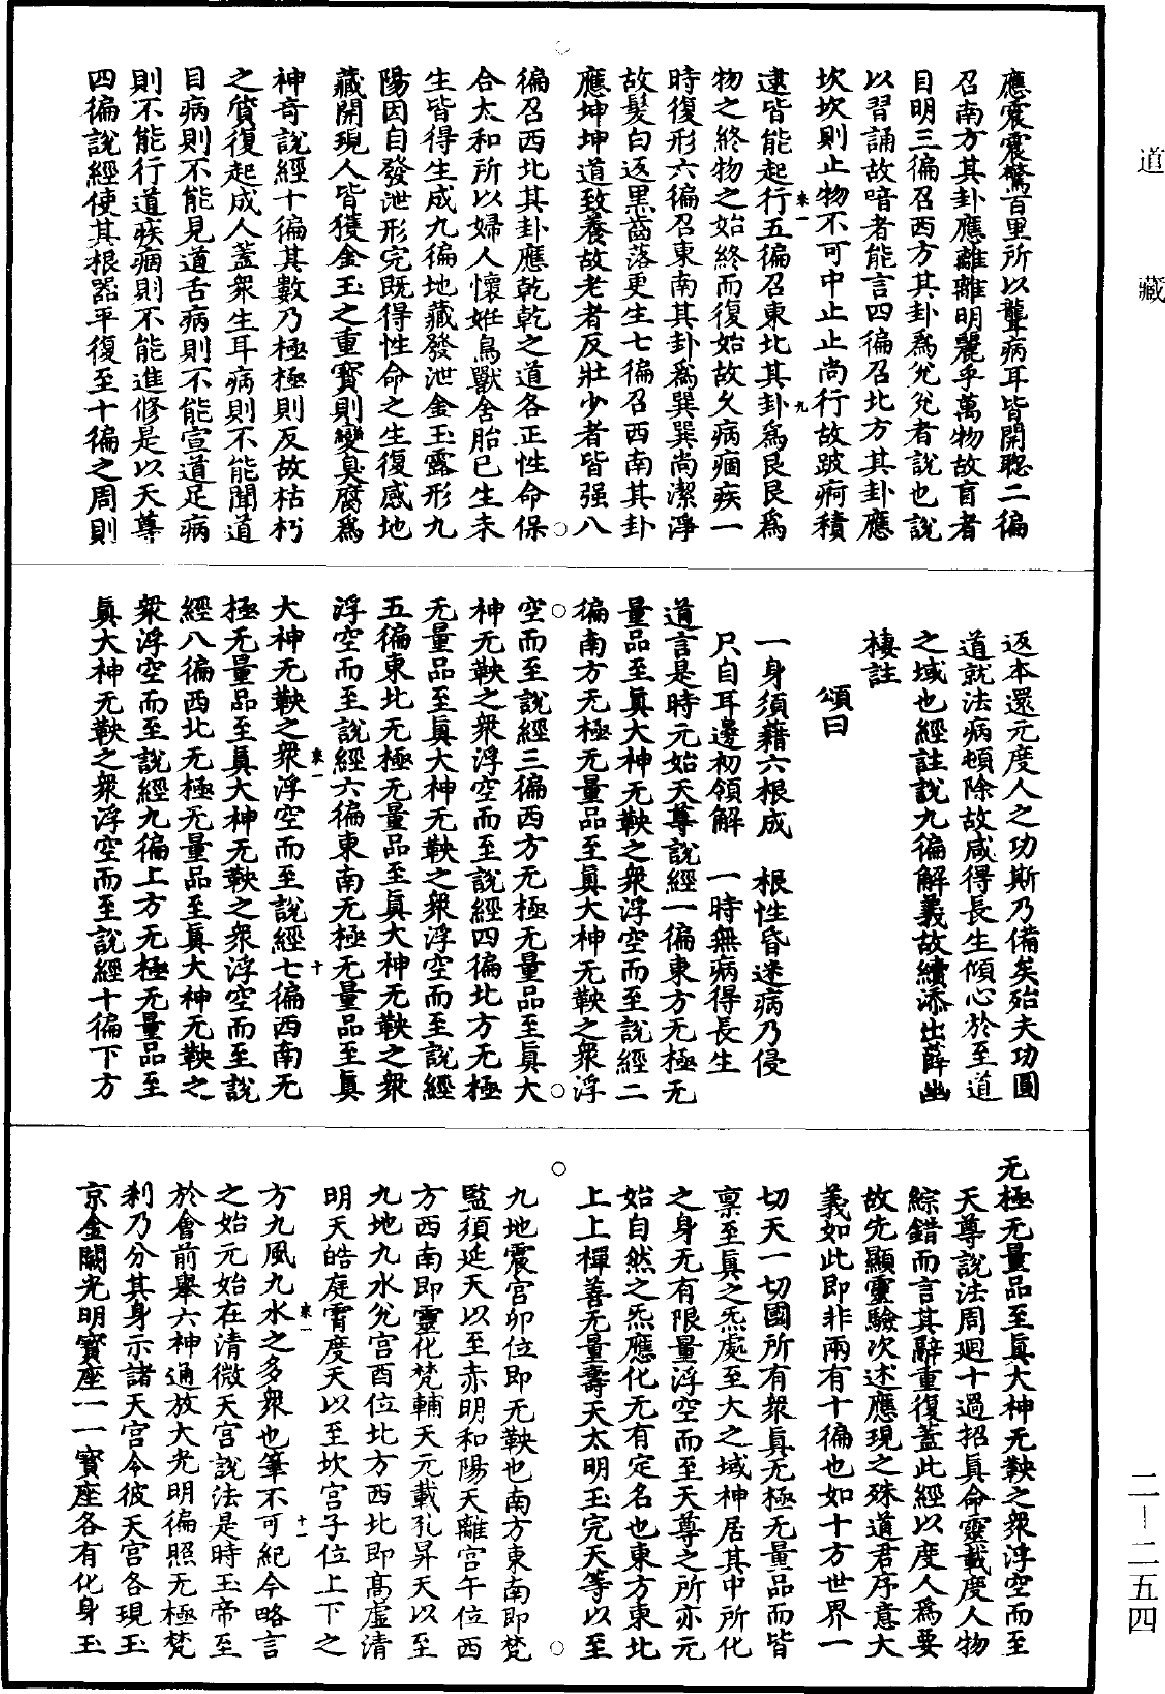 道藏
應震震驚百里所以聾病耳皆開聰二徧
召南方其卦應離離明麗乎萬物故盲者
目明三徧召西方其卦為兊兊者說也說
以習誦故喑者能言四徧召北方其卦應
坎坎則止物不可中止止尚行故跛痾積
逮皆能起行五徧召東北其卦為艮艮為
來一 九
物之終物之始終而復始故久病痼疾一
時復形六徧召東南其卦為巽巽尚潔淨
故髮白返黑齒落更生七徧召西南其卦
應坤坤道致養故老者反壯少者皆强八
徧召西北其卦應乾乾之道各正性命保
合太和所以婦人懷妊鳥獸含胎已生未
生皆得生成九徧地藏發泄金玉露形九
陽因自發泄形完既得性命之生復感地
藏開現人皆獲金玉之重寳則變臭腐為
神奇說經十徧其數乃極極則反故枯朽
之質復起成人蓋衆生耳病則不能聞道
目病則不能見道舌病則不能宣道足病
則不能行道疾痼則不能進修是以天尊
四徧說經使其根器平復至十徧之周則
返本還元度人之功斯乃備矣殆夫功圓
道就法病頓除故咸得長生傾心於至道
之域也經註說九徧解義故續添出薛幽
棲註
頌曰
一身須藉六根成　根性昏迷病乃侵
只自耳邊初領解　一時無病得長生
道言是時元始天尊說經一徧東方无極无
量品至真大神无鞅之衆浮空而至說經二
徧南方无極无量品至真大神无鞅之衆浮
空而至說經三徧西方无極无量品至真大
神无鞅之衆浮空而至說經四徧北方无極
无量品至真大神无鞅之衆浮空而至說經
五徧東北无極无量品至真大神无鞅之衆
浮空而至說經六徧東南无極无量品至真
來一 十
大神无鞅之衆浮空而至說經七徧西南无
極无量品至真大神无鞅之衆浮空而至說
經八徧西北无極无量品至真大神无鞅之
衆浮空而至說經九徧上方无極无量品至
真大神无鞅之衆浮空而至說經十徧下方
无極无量品至真大神无鞅之衆浮空而至
天尊說法周廻十過招真命靈載度人物
綜錯而言其辭重復蓋此經以度人為要
故先顯靈驗次述應現之殊道君序意大
義如此即非兩有十徧也如十方世界一
切天一切國所有衆真无極无量品而皆
禀至真之炁處至大之域神居其中所化
之身无有限量浮空而至天尊之所亦元
始自然之炁應化无有定名也東方東北
上上禪善无量壽天太明玉完天等以至
九地震宮卯位即无鞅也南方東南即梵
監須延天以至赤明和陽天離宮午位西
方西南即靈化梵輔天元載孔昇天以至
九地九水兊宮酉位北方西北即高虛清
明天皓庭霄度天以至坎宮子位上下之
來一 十一
方九風九水之多衆也筆不可紀今略言
之始元始在清微天宮說法是時玉帝至
於會前舉六神通放大光明徧照无極梵
刹乃分其身示諸天宮令彼天宮各現玉
京金闕光明寳座一一寳座各有化身玉
二—二五四